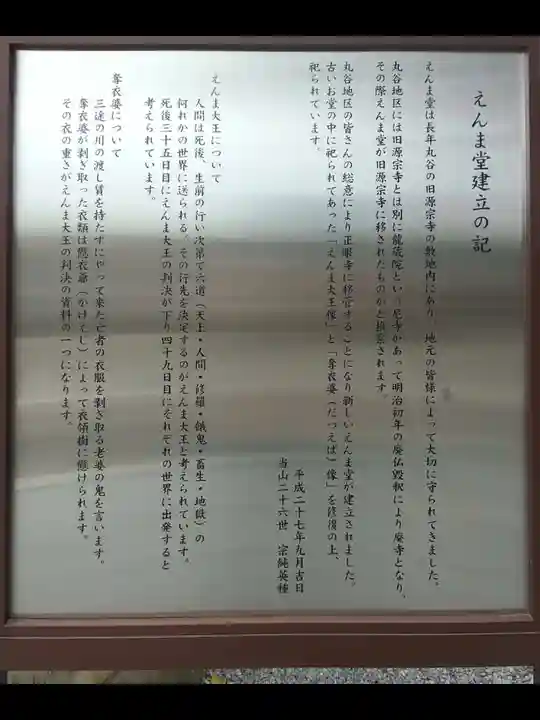 えんま堂建立の記
えんま堂は長年丸谷の旧源宗寺の敷地内にあり、地元の皆様によって大切に守られてきました。
丸谷地区には旧源宗寺とは別に龍蔵院という尼寺があって明治初年の廃仏毀釈により廃寺となり、
その際えんま堂が旧源宗寺に移されたものかと推察されます。
丸谷地区の皆さんの総意により正眼寺に移管することになり新しいえんま堂が建立されました。
古いお堂の中に祀られてあった「えんま大王像」と「奪衣婆（だつえば）像」を修復の上、
祀られています。
平成二十七年九月吉日
当山二十六世 宗純英種
えんま大王について
人間は死後、生前の行い次第で六道（天上・人間・修羅・餓鬼・畜生・地獄）の
何れかの世界に送られる。その行先を決定するのがえんま大王と考えられています。
死後三十五日目にえんま大王の判決が下り四十九日目にそれぞれの世界に出発すると
考えられています。
奪衣婆について
三途の川の渡し賃を持たずにやって来た亡者の衣服を剥ぎ取る老婆の鬼を言います。
奪衣婆が剥ぎ取った衣類は懸衣翁（かけえじ）によって衣領樹に懸けられます。
その衣の重さがえんま大王の判決の資料の一つになります。